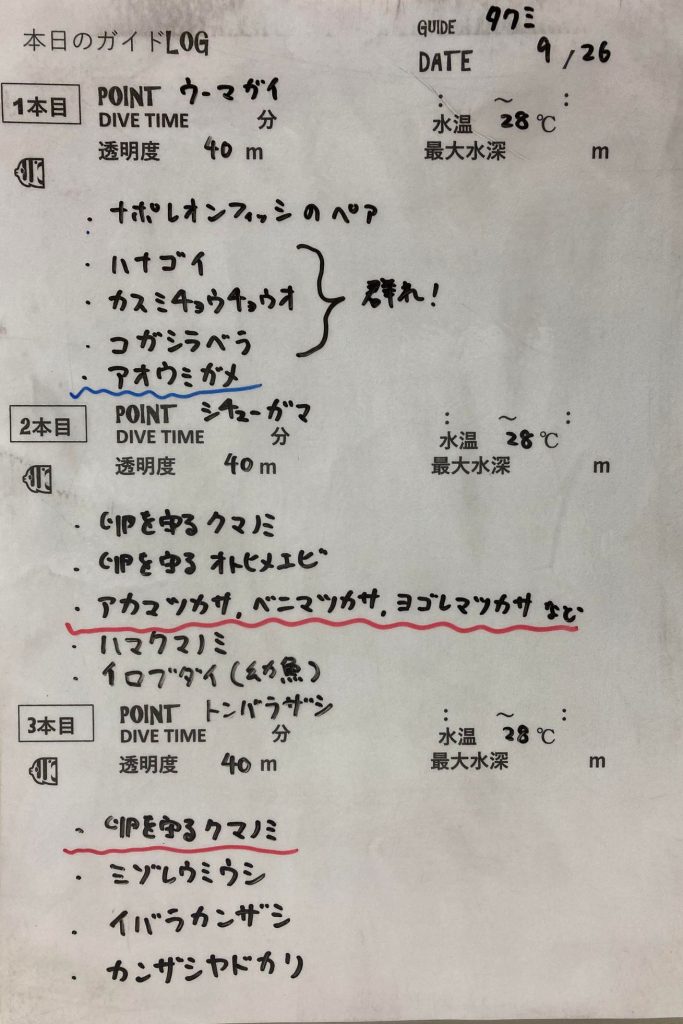 本日のガイドLOG
GUIDE タクミ
DATE 9/26
1本目 POINT ウーマガイ : ～ :
DIVE TIME 分 水温 28℃
透明度 40m 最大水深 m
・ナポレオンフィッシのペア
・ハナゴイ
・カスミチョウチョウオ 群れ!
・コガシラベラ
・アオウミガメ
2本目 POINT シチューガマ : ～ :
DIVE TIME 分 水温 28℃
透明度 40m 最大水深 m
・卵を守るクマノミ
・卵を守るオトヒメエビ
・アカマツカサ,ベニマツカサ,ヨゴレマツカサなど
・ハマクマノミ
・イロブダイ(幼魚)
3本目 POINT トンバラザシ : ～ :
DIVE TIME 分 水温 28℃
透明度 40m 最大水深 m
・卵を守るクマノミ
・ミゾレウミウシ
・イバラカンザシ
・カンザシヤドカリ